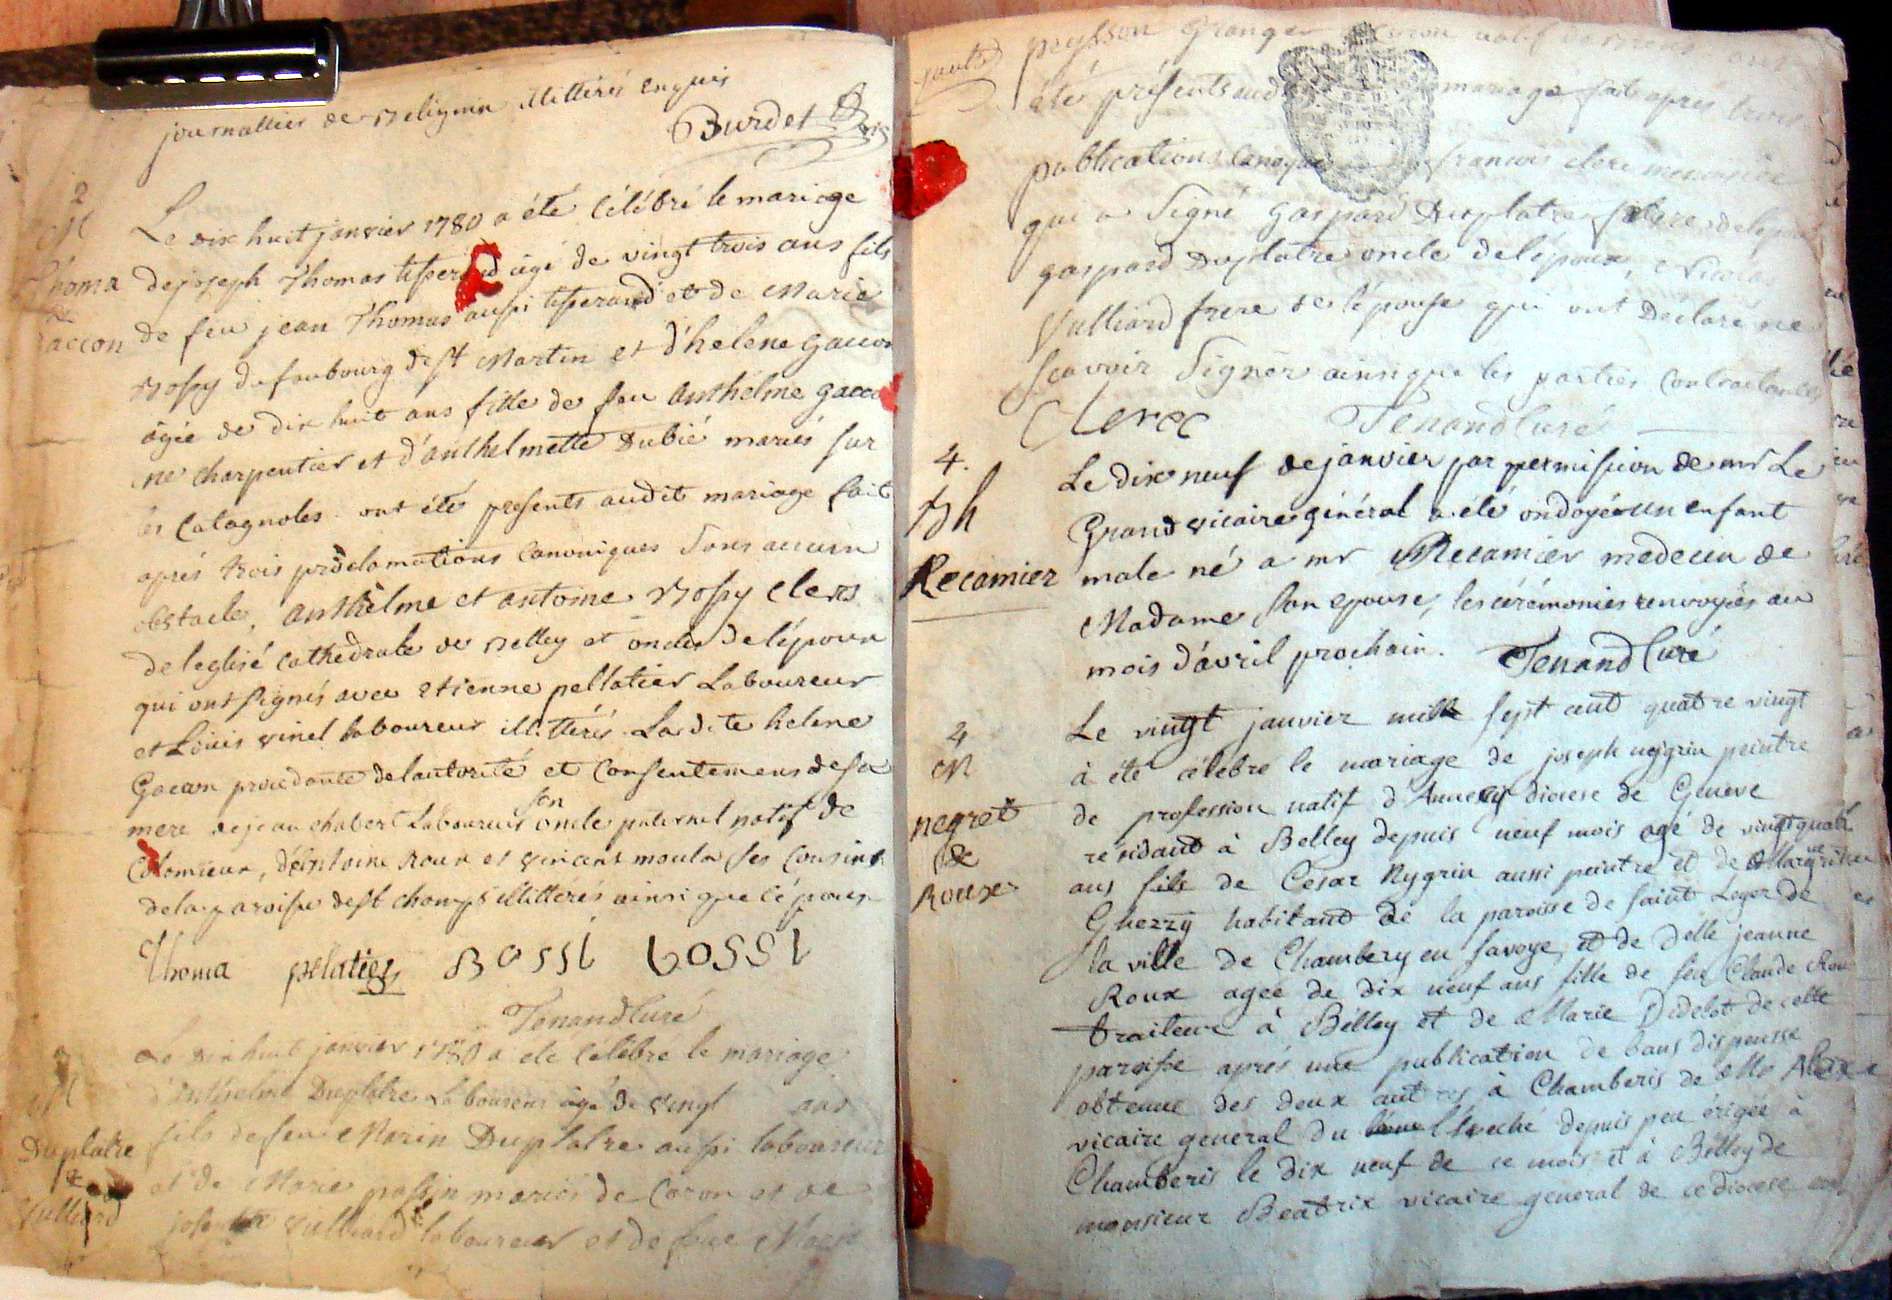 journallier de Belignin illittérés enquis
Burdet
2
M
Thoma
&
Gaccon
Le dix huit janvier 1780 a été célébré le mariage
de joseph Thomas tisserand âgé de vingt trois ans fils
de feu jean Thomas aussi tisserand et de Marie
Bossy du faubourg de st Martin et d'helene Gaccon
âgée de dix huit ans fille de feu Anthelme gacco
ne charpentier et d'anthelmette Dubié mariés sur
les Catagnoles ont étés presents audit mariage fait
aprés trois proclamations canoniques sans aucun
obstacle, Anthèlme et antoine Bossy clercs
de leglise cathedrale de Belley et oncles de l'époux
qui ont signés avec etienne pellatier Laboureur
et Louis vinel laboureur illitterés. La dite helene
Gacon procedante de lautorité et consentement de sa
mere de jean chabert Laboureur son oncle paternel natif de
Colomieux, d'Antoine Roux et vincent moula ses cousins
de la paroisse de st champ illittérés ainsi que l'épouse
Thoma pelatier BOSSI BOSSI
Tenand Curé
M
Duplatre
&
Vulliard
Le dix huit janvier 1780 a été célébré le mariage
d'Anthelme Duplatre Laboureur âgé de vingt ans
fils de feu Marin Duplatre aussi laboureur
et de Marie passin mariés de Coron et de
Vulliard laboureur et de feue Marie
peysson Granger natif
été présents audit mariage fait aprés trois
publications canoniques francois clerc menuisier
qui a signé gaspard Duplatre frere de l'époux
gaspard Duplatre oncle de l'époux, Nicolas
Vulliard frere de l'épouse qui ont declaré ne
scavoir signer ainsi que les parties contractantes
Clerc Tenand Curé
4.
Bh
Recamier
Le dix neuf de janvier par permission de mr Le
Grand vicaire général a été ondoyé un enfant
male né a mr Recamier medecin de
Madame son epouse, les cérémonies renvoyées au
mois d'avril prochain. Tenand Curé
4
M
negret
de
Roux
Le vingt janvier mille sept cent quatre vingt
à été célébré le mariage de joseph negrin peintre
de profession natif d'Annecy diocese de Geneve
résidant à Belley depuis neuf mois agé de vingt quatre
ans fils de César Nygrin aussi peintre et de Marguerite
Ghezzy habitant de la paroisse de saint Leger de
la ville de Chambery en Savoye et de Delle jeanne
Roux agée de dix neuf ans fille de feu Claude Roux
traiteur à Belley et de Marie Didelot de cette
paroisse aprés une publication de bans dispense
obtenue des deux autres à Chamberis de Mr Alex
vicaire general du l'Eveché depuis peu érigée à
Chamberis le dix neuf de ce mois et à Belley de
monsieur Beatrix vicaire general de ce diocese